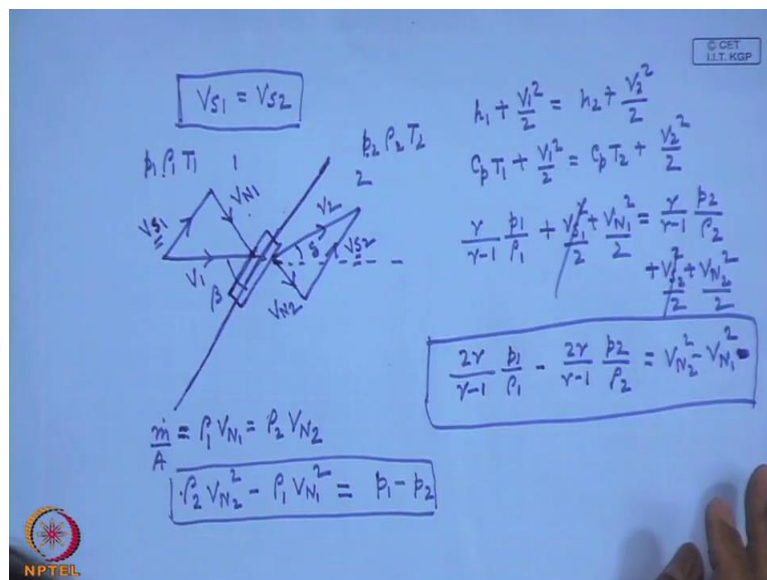 © CET
I.I.T. KGP
V_{S1} = V_{S2}
p_1 ρ_1 T_1
1
p_2 ρ_2 T_2
2
V_{S1}
V_{N1}
V_1
β
V_2
δ
V_{S2}
V_{N2}
ṁ/A = ρ_1 V_{N1} = ρ_2 V_{N2}
ρ_2 V_{N2}^2 - ρ_1 V_{N1}^2 = p_1 - p_2
h_1 + V_1^2/2 = h_2 + V_2^2/2
C_p T_1 + V_1^2/2 = C_p T_2 + V_2^2/2
γ/(γ-1) p_1/ρ_1 + V_{S1}^2/2 + V_{N1}^2/2 = γ/(γ-1) p_2/ρ_2
+ V_{S2}^2/2 + V_{N2}^2/2
2γ/(γ-1) p_1/ρ_1 - 2γ/(γ-1) p_2/ρ_2 = V_{N2}^2 - V_{N1}^2
NPTEL